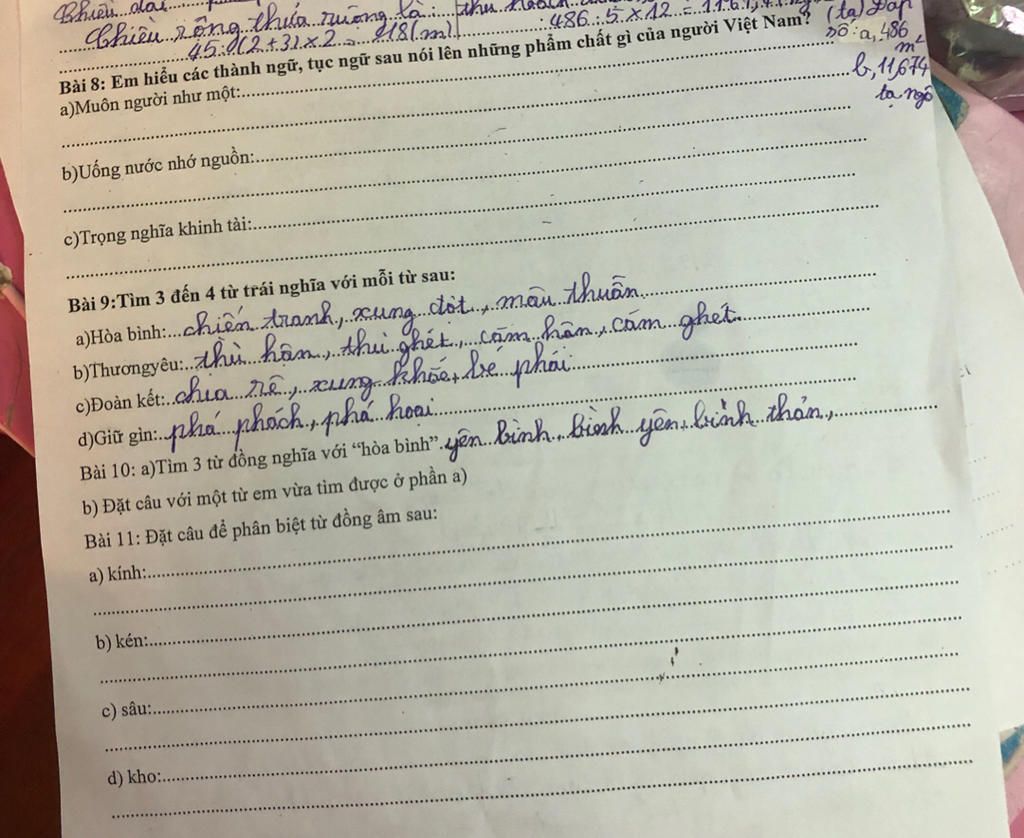 Chiều dài
Chiều rộng thửa ruộng là: thu hoạch
45:(2+3)×2= 18(m) :486:5×12=
(tạ) Đáp
số: a, 486
m²
b, 11,674
tạ ngô
Bài 8: Em hiểu các thành ngữ, tục ngữ sau nói lên những phẩm chất gì của người Việt Nam?
a)Muôn người như một:
b)Uống nước nhớ nguồn:
c)Trọng nghĩa khinh tài:
Bài 9:Tìm 3 đến 4 từ trái nghĩa với mỗi từ sau:
a)Hòa bình: chiến tranh, xung đột, mâu thuẫn
b)Thươngyêu: thù hận, thù ghét, căm hận, căm ghét
c)Đoàn kết: chia rẽ, xung khắc, bè phái
d)Giữ gìn: phá phách, phá hoại
Bài 10: a)Tìm 3 từ đồng nghĩa với “hòa bình”. yên bình, bình yên, bình thản,
b) Đặt câu với một từ em vừa tìm được ở phần a)
Bài 11: Đặt câu để phân biệt từ đồng âm sau:
a) kính:
b) kén:
c) sâu:
d) kho: